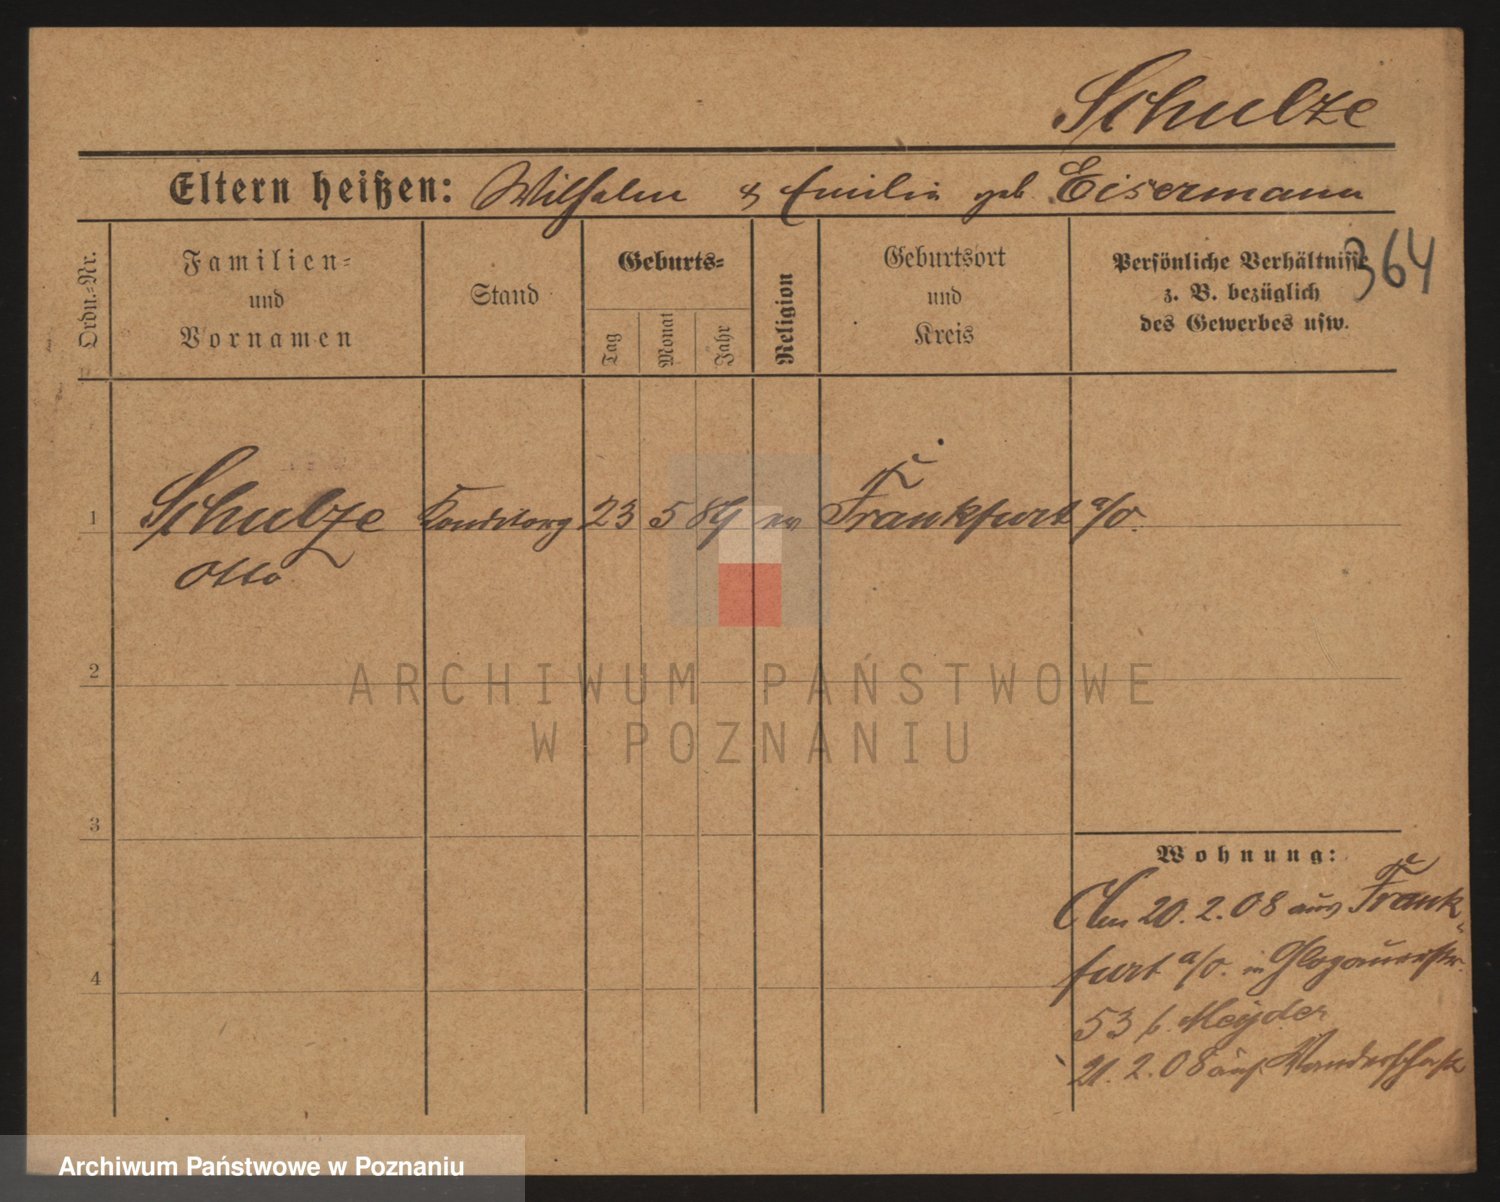 Schulze
Eltern heißen: Wilhelm & Emilie geb Eisermann
364
Ordn.-Nr.
Familien-
und
Vornamen
Stand
Geburts-
Tag
Monat
Jahr
Religion
Geburtsort
und
Kreis
Persönliche Verhältnisse
z. B. bezüglich
des Gewerbes usw.
1 Schulze Konditorg 23 5 89 ev Frankfurt a/O.
Otto
2
3
4
Wohnung:
Am 20.2.08 aus Frank-
furt a/O. in Glogauerstr.
53 b. Meyder
21.2.08 auf Wanderschaft
ARCHIWUM PAŃSTWOWE
W POZNANIU
Archiwum Państwowe w Poznaniu